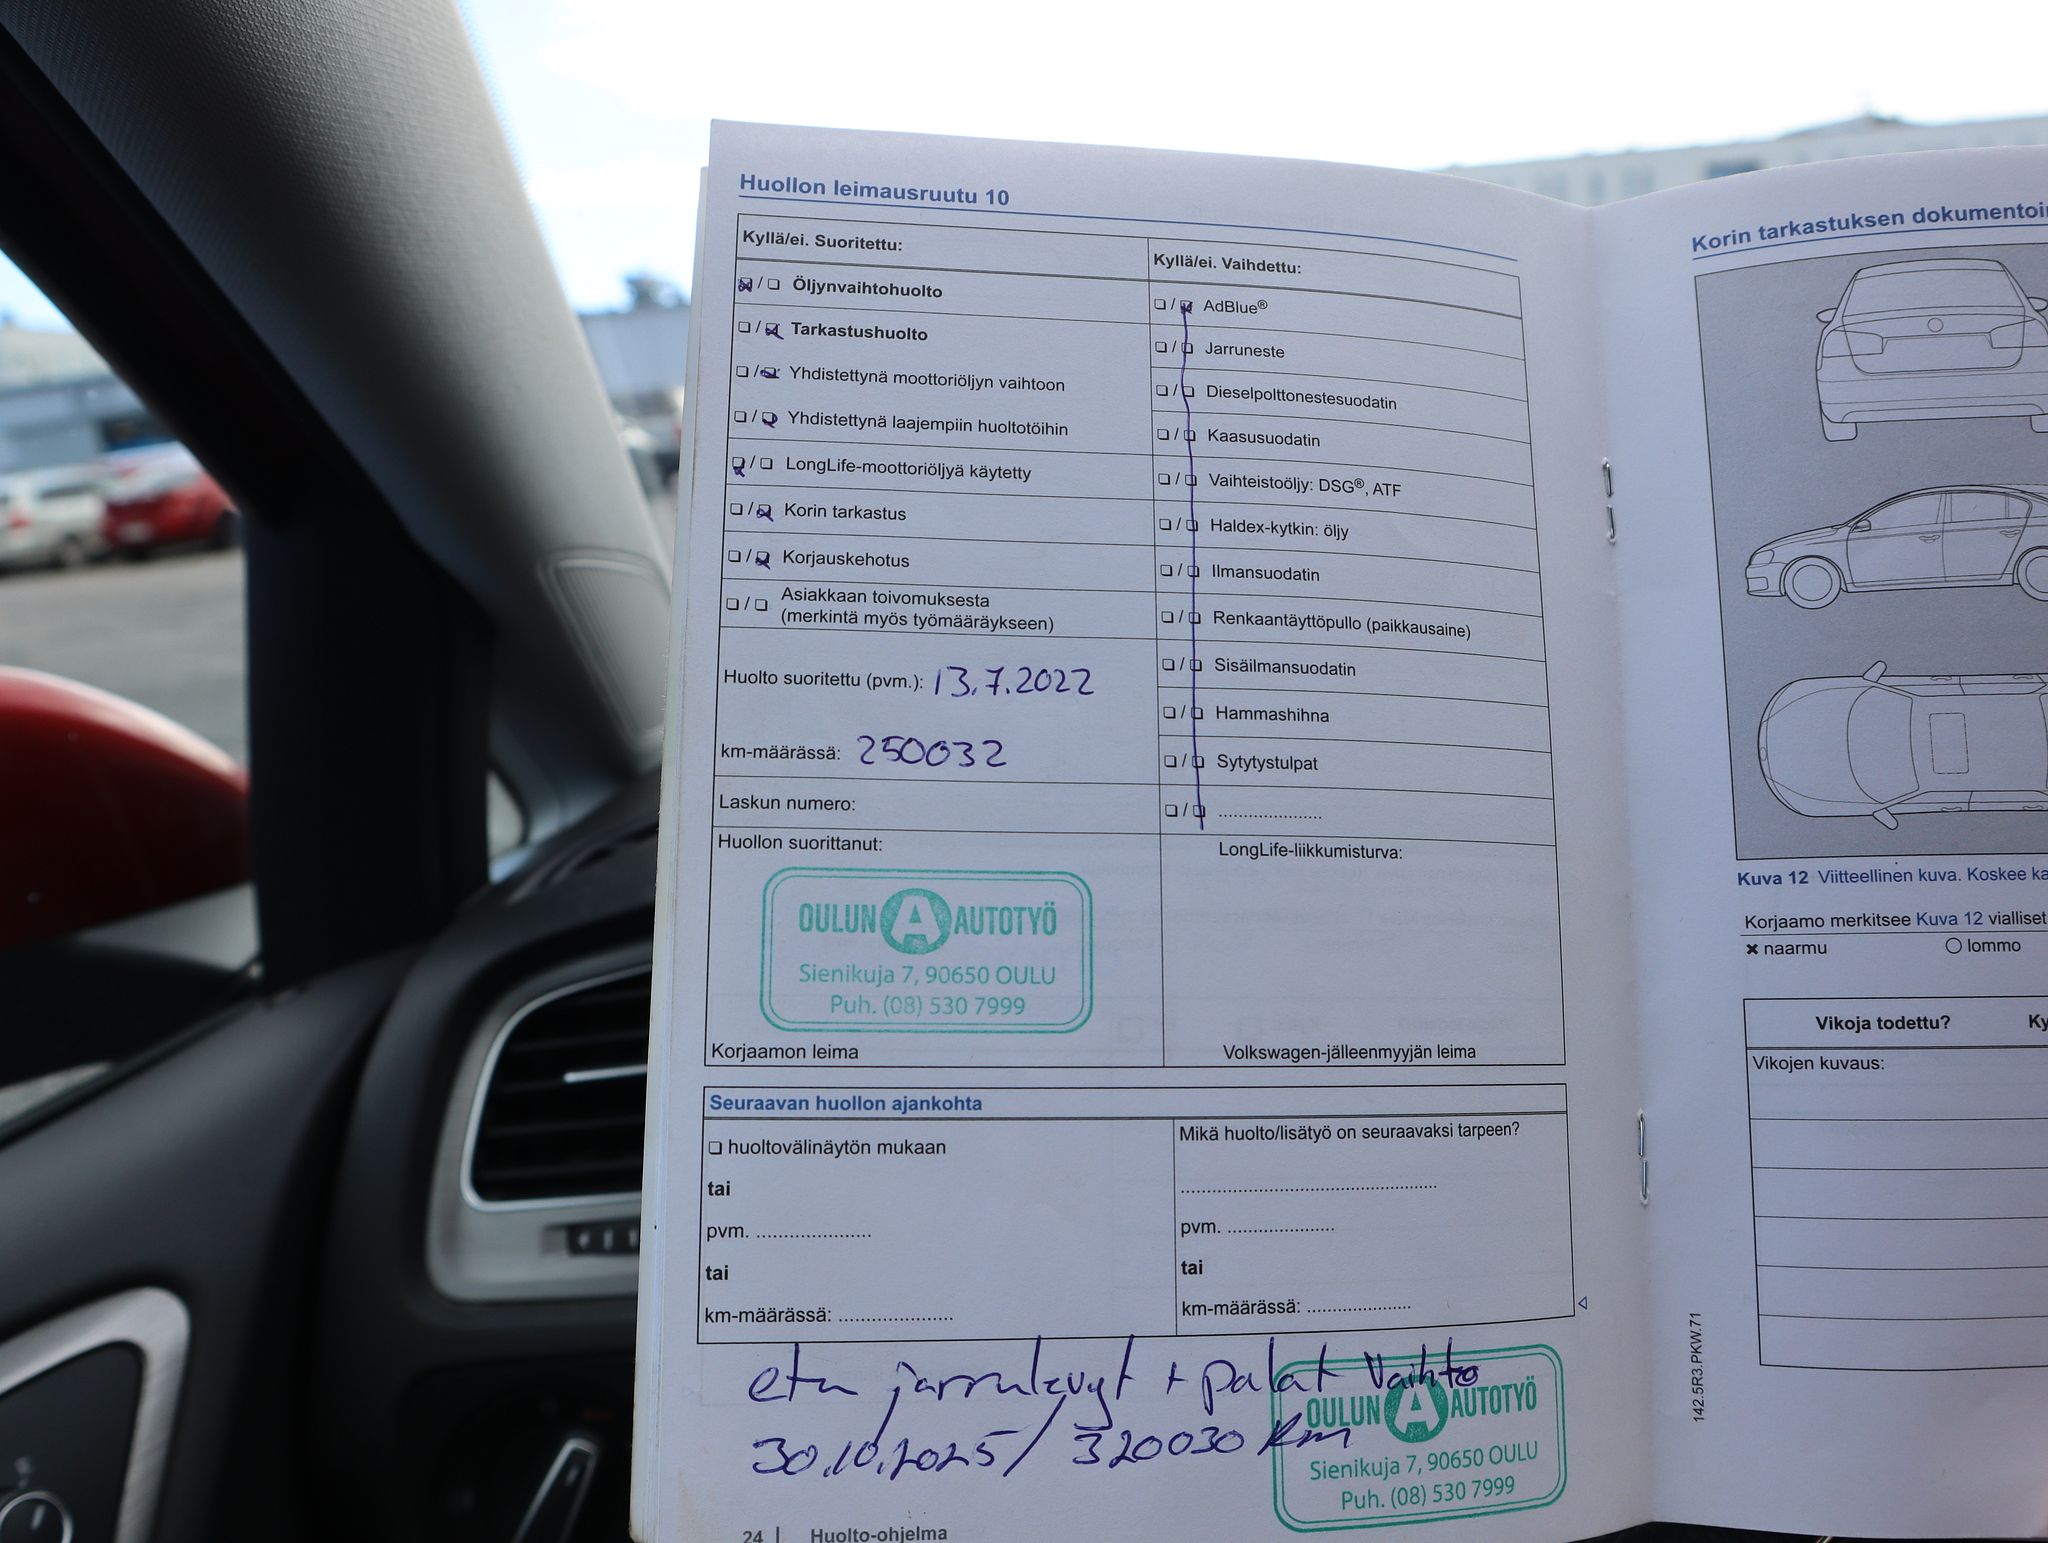 Huollon leimausruutu 10
Kyllä/ei. Suoritettu:
Öljynvaihtohuolto
Tarkastushuolto
Yhdistettynä moottoriöljyn vaihtoon
Yhdistettynä laajempiin huoltotöihin
LongLife-moottoriöljyä käytetty
Korin tarkastus
Korjauskehotus
Asiakkaan toivomuksesta
(merkintä myös työmääräykseen)
Huolto suoritettu (pvm.): 13.7.2022
km-määrässä: 250032
Laskun numero:
Huollon suorittanut:
OULUN A AUTOTYÖ
Sienikuja 7, 90650 OULU
Puh. (08) 530 7999
Korjaamon leima
Kyllä/ei. Vaihdettu:
AdBlue®
Jarruneste
Dieselpolttonestesuodatin
Kaasusuodatin
Vaihteistoöljy: DSG®, ATF
Haldex-kytkin: öljy
Ilmansuodatin
Renkaantäyttöpullo (paikkausaine)
Sisäilmansuodatin
Hammashihna
Sytytystulpat
LongLife-liikkumisturva:
Volkswagen-jälleenmyyjän leima
Seuraavan huollon ajankohta
huoltovälinäytön mukaan
tai
pvm. ......................
tai
km-määrässä: ......................
Mikä huolto/lisätyö on seuraavaksi tarpeen?
pvm. ......................
tai
km-määrässä: ......................
etu jarrulevyt + palat vaihto
30.10.2025 / 320030 km
OULUN A AUTOTYÖ
Sienikuja 7, 90650 OULU
Puh. (08) 530 7999
24 | Huolto-ohjelma
Korin tarkastuksen
Kuva 12 Viitteellinen kuva. Koskee
Korjaamo merkitsee Kuva 12 vialliset
naarmu lommo
Vikoja todettu?
Vikojen kuvaus:
142.5R3.PKW.71